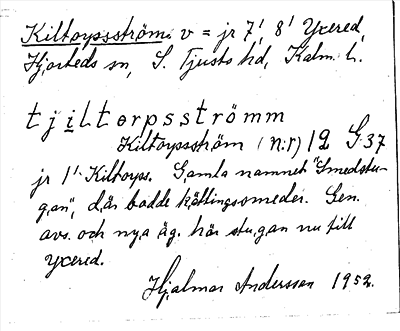 Kiltoysström. v = jr 7¹, 8¹ Yxered,
Hjorteds sn, S. Tjusts hd, Kalm. l.
tjiltorpsströmm
Kiltoysström (n:r) 12 G 37
jr 1¹ Kiltoys. Gamla namnet "Smedstu-
gan", där bodde kättingsmeder. Gen.
avs. och nya äg. hör stugan nu till
Yxered.
Hjalmar Andersson 1952.